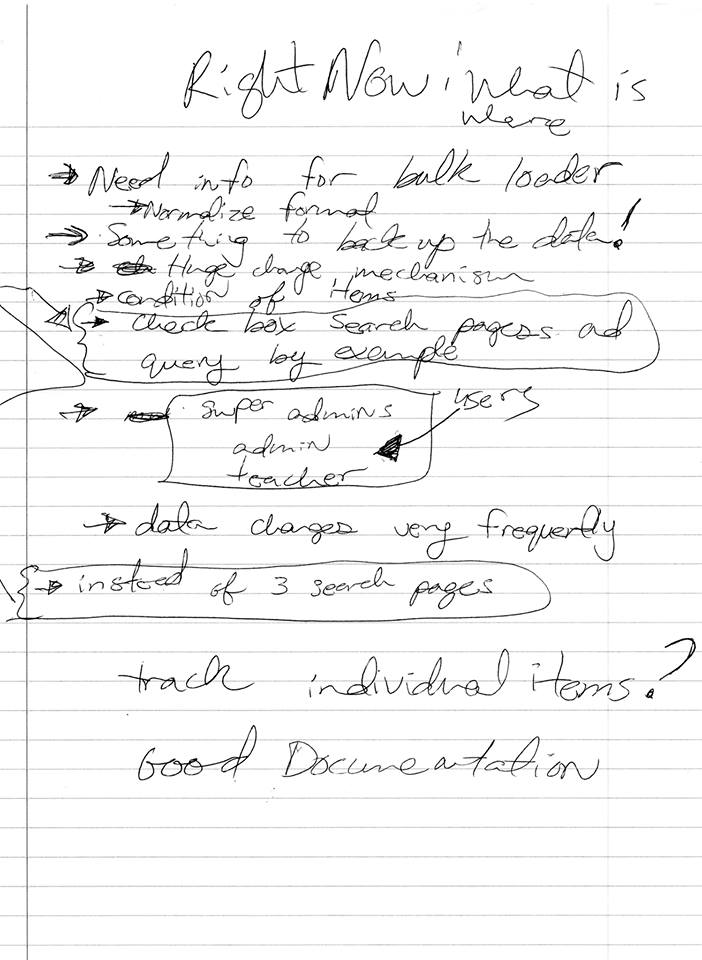 Right Now: What is
where
→ Need info for bulk loader
→ Normalize format
→ Something to back up the data!
→ Huge change mechanism
→ condition of items
→ Check box Search pages ad
query by example
→ super admins
users
admin
teacher
→ data changes very frequently
→ instead of 3 search pages
track individual items?
Good Documentation